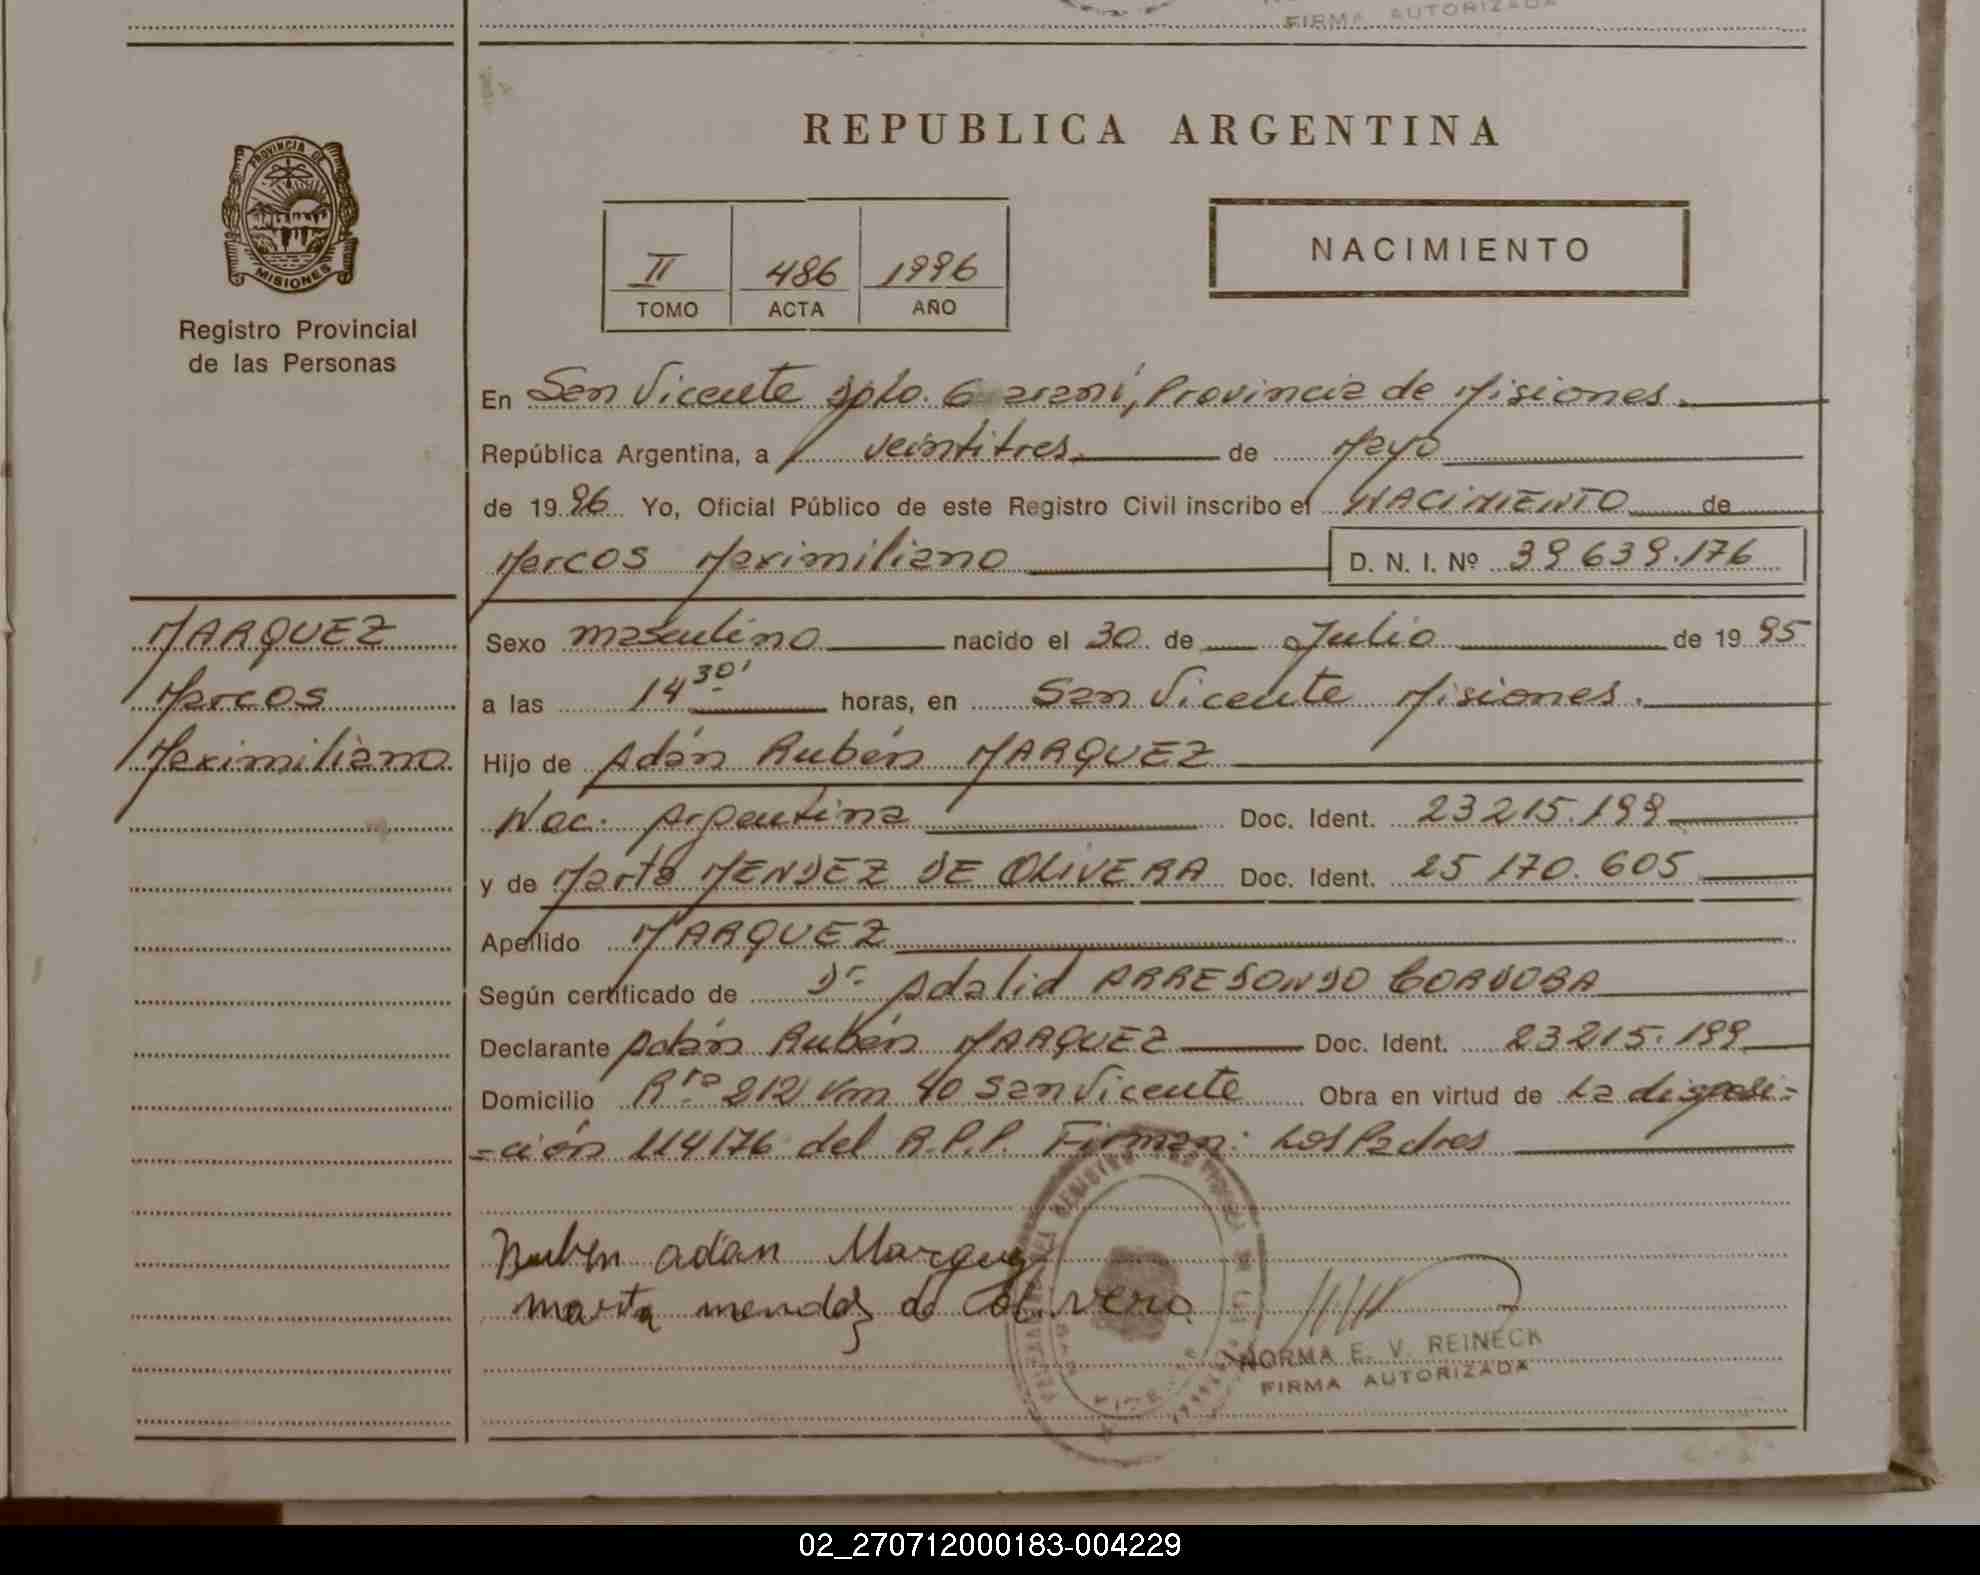 FIRMA AUTORIZADA
REPUBLICA ARGENTINA
PROVINCIA DE
MISIONES
Registro Provincial
de las Personas
II 486 1996
TOMO ACTA AÑO
NACIMIENTO
En San Vicente Dpto. Guaraní, Provincia de Misiones.
República Argentina, a veintitres de Mayo
de 1996 Yo, Oficial Público de este Registro Civil inscribo el NACIMIENTO de
Marcos Maximiliano D. N. I. Nº 39639.176
MARQUEZ
Marcos
Maximiliano
Sexo masculino nacido el 30 de Julio de 1995
a las 14 30' horas, en San Vicente Misiones.
Hijo de Adán Rubén MARQUEZ
Nac. Argentina Doc. Ident. 23215.199
y de Marta MENDEZ DE OLIVERA Doc. Ident. 25170.605
Apellido MARQUEZ
Según certificado de Dr. Adalid ARREDONDO CORDOBA
Declarante Adán Rubén MARQUEZ Doc. Ident. 23215.199
Domicilio Rta 212 Km 40 San Vicente Obra en virtud de La disposi-
-ción 114/76 del R.P.P. Firman: Los Padres
Rubén adan Marquez
marta mendez de olivera
NORMA E. V. REINECK
FIRMA AUTORIZADA
02_270712000183-004229